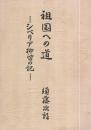 祖国への道
―シベリア抑留の記―
須藤政路